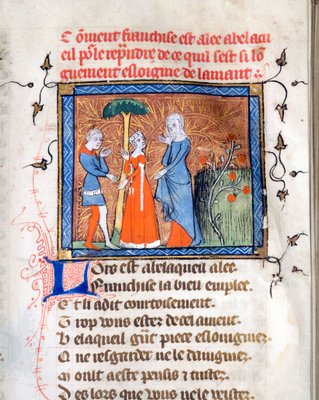 Cõment franchise est alee a belacu
eil por le reprendre de ce quil sest si lon
guement essoigne de lamant
Lors est a belaqueil alee
Franchise la bien emplee
Et li a dit courtoisement
Trop vous estes de cel amant
Belaqueil grant piece essoigniez
Que resgarder ne le daingniez
Mout a este pensis et tristes
Des lors que vous ne le veistes